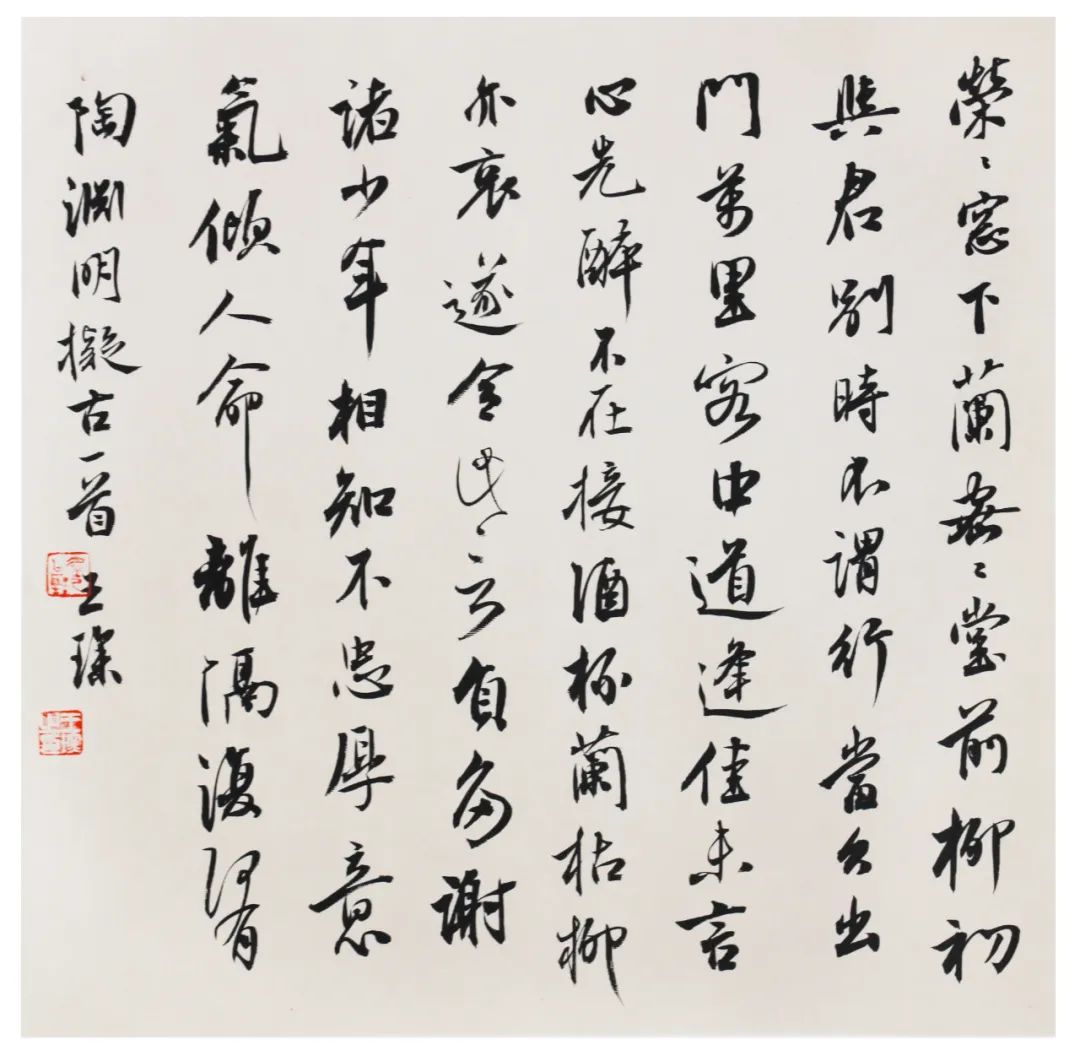 榮〻窓下蘭密〻堂前柳初
與君別時不謂行當久出
門萬里客中道逢佳未言
心先醉不在接酒杯蘭枯柳
亦衰遂令此言負多謝
諸少年相知不忠厚意
氣傾人命離隔復何有
陶淵明擬古一首 王琛